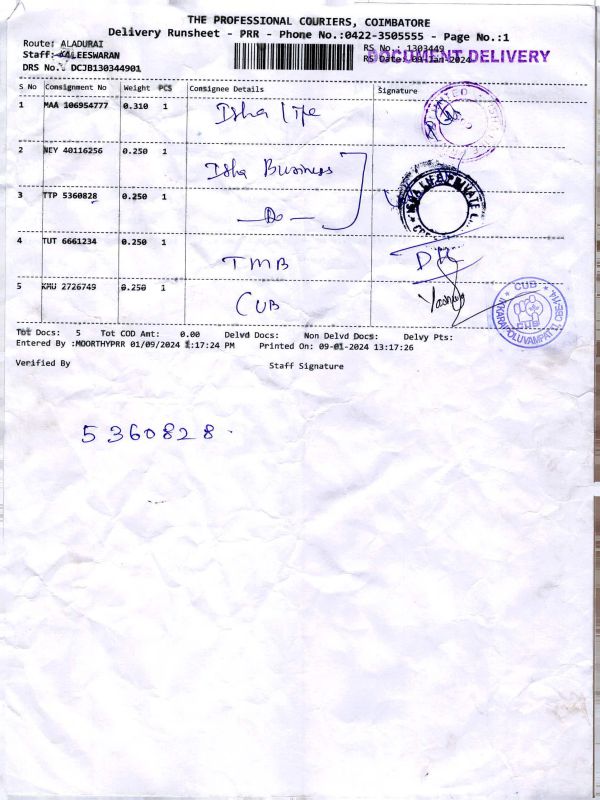 THE PROFESSIONAL COURIERS, COIMBATORE
Delivery Runsheet - PRR - Phone No.:0422-3505555 - Page No.:1
Route: ALADURAI
RS No.: 1303449
Staff: KALEESWARAN
RS Date: 09-Jan-2024
DOCUMENT DELIVERY
DRS No.: DCJB130344901
S No Consignment No Weight PCS Consignee Details Signature
1 MAA 106954777 0.310 1 Isha Life
2 NEY 40116256 0.250 1 Isha Business
3 TTP 5360828 0.250 1 -Do-
4 TUT 6661234 0.250 1 TMB
5 KMU 2726749 0.250 1 CUB
Yashwy
CUB
Tot Docs: 5 Tot COD Amt: 0.00 Delvd Docs: Non Delvd Docs: Delvy Pts:
Entered By :MOORTHYPRR 01/09/2024 1:17:24 PM Printed On: 09-01-2024 13:17:26
Verified By Staff Signature
5360828